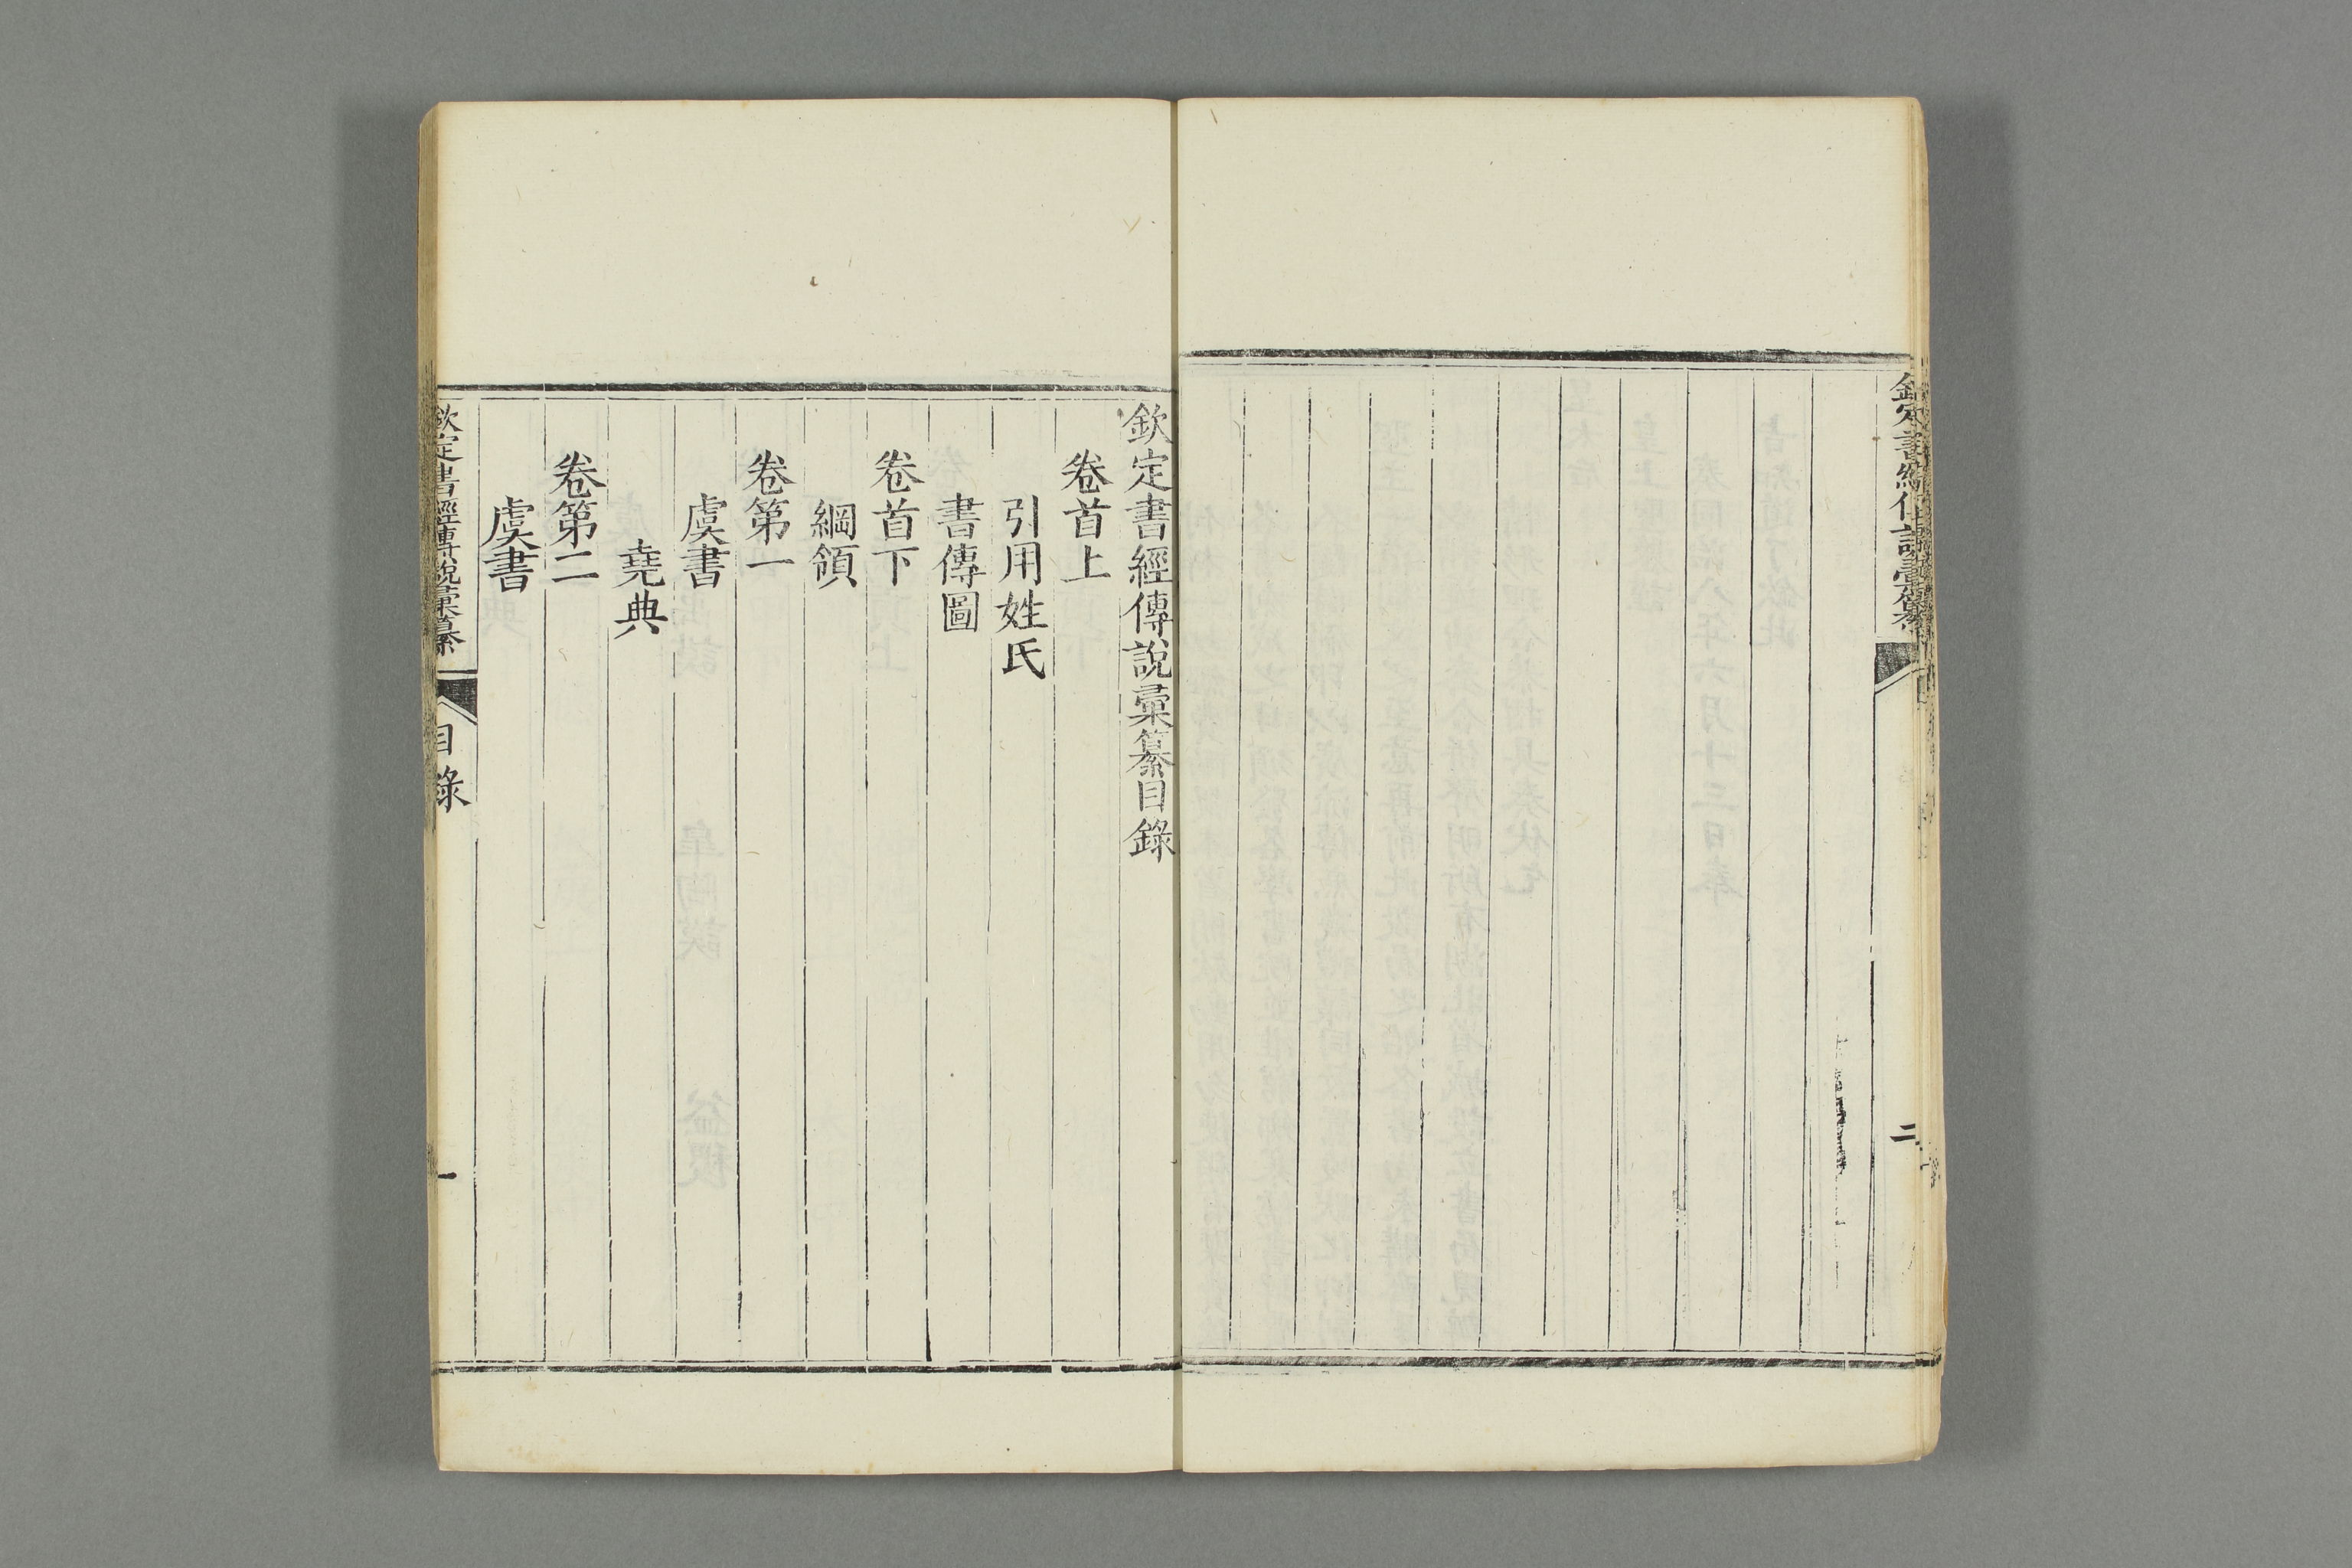 二
欽定書經傳說彙纂目錄
卷首上
引用姓氏
書傳圖
卷首下
綱領
卷第一
虞書
堯典
卷第二
虞書
欽定書經傳說彙纂
目錄
一